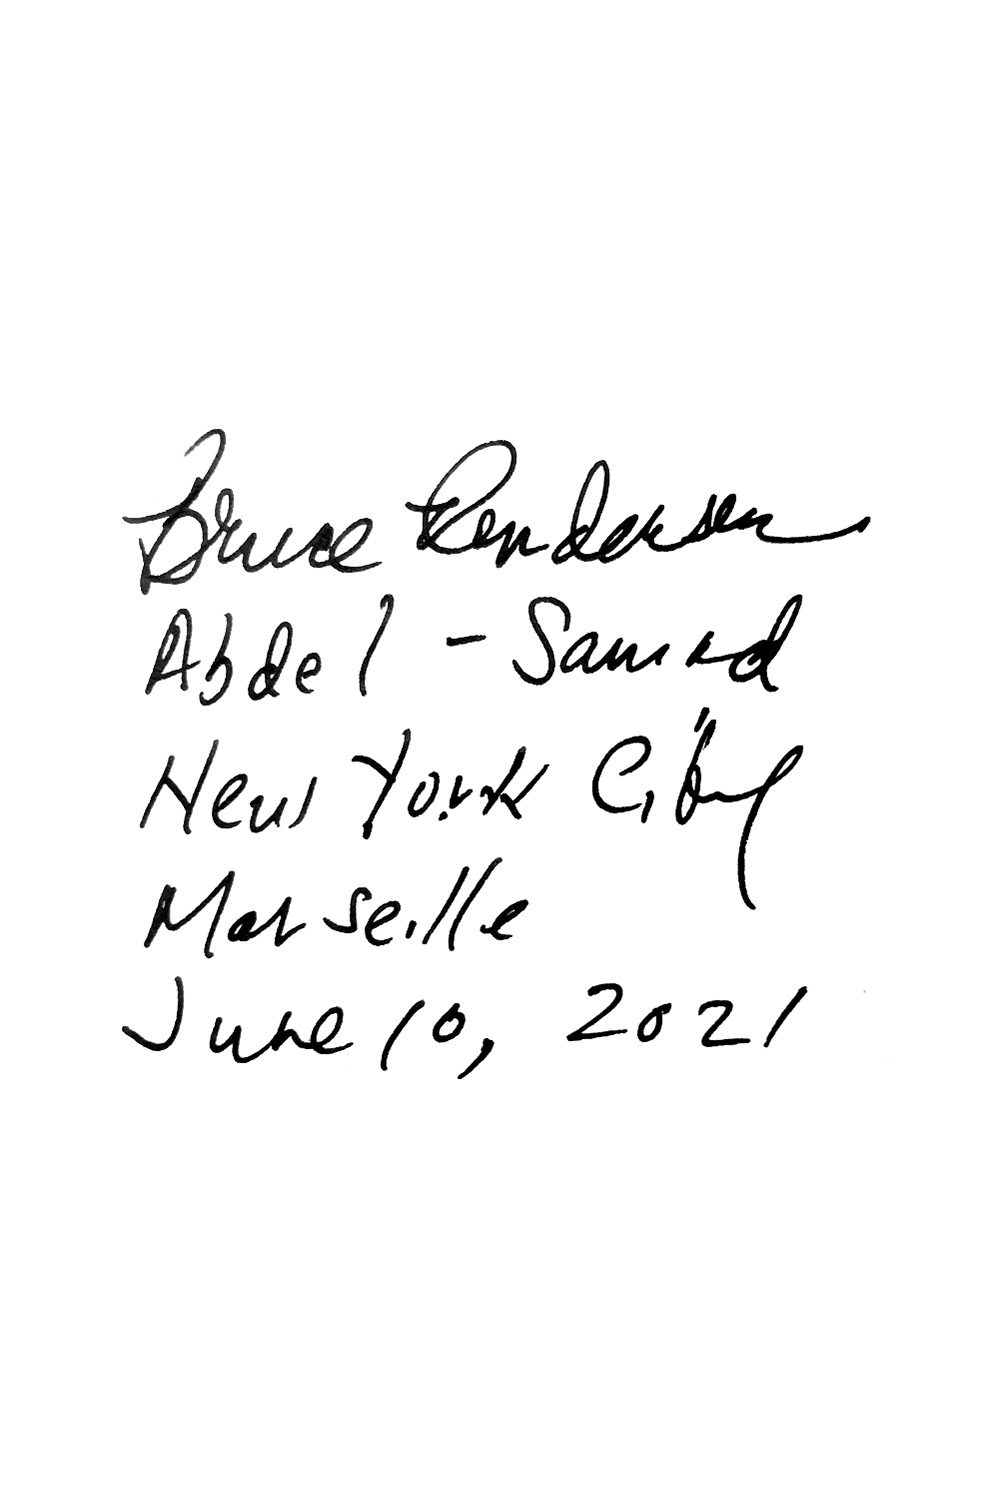 Bruce Benderson
Abdel - Samad
New York City
Marseille
June 10, 2021